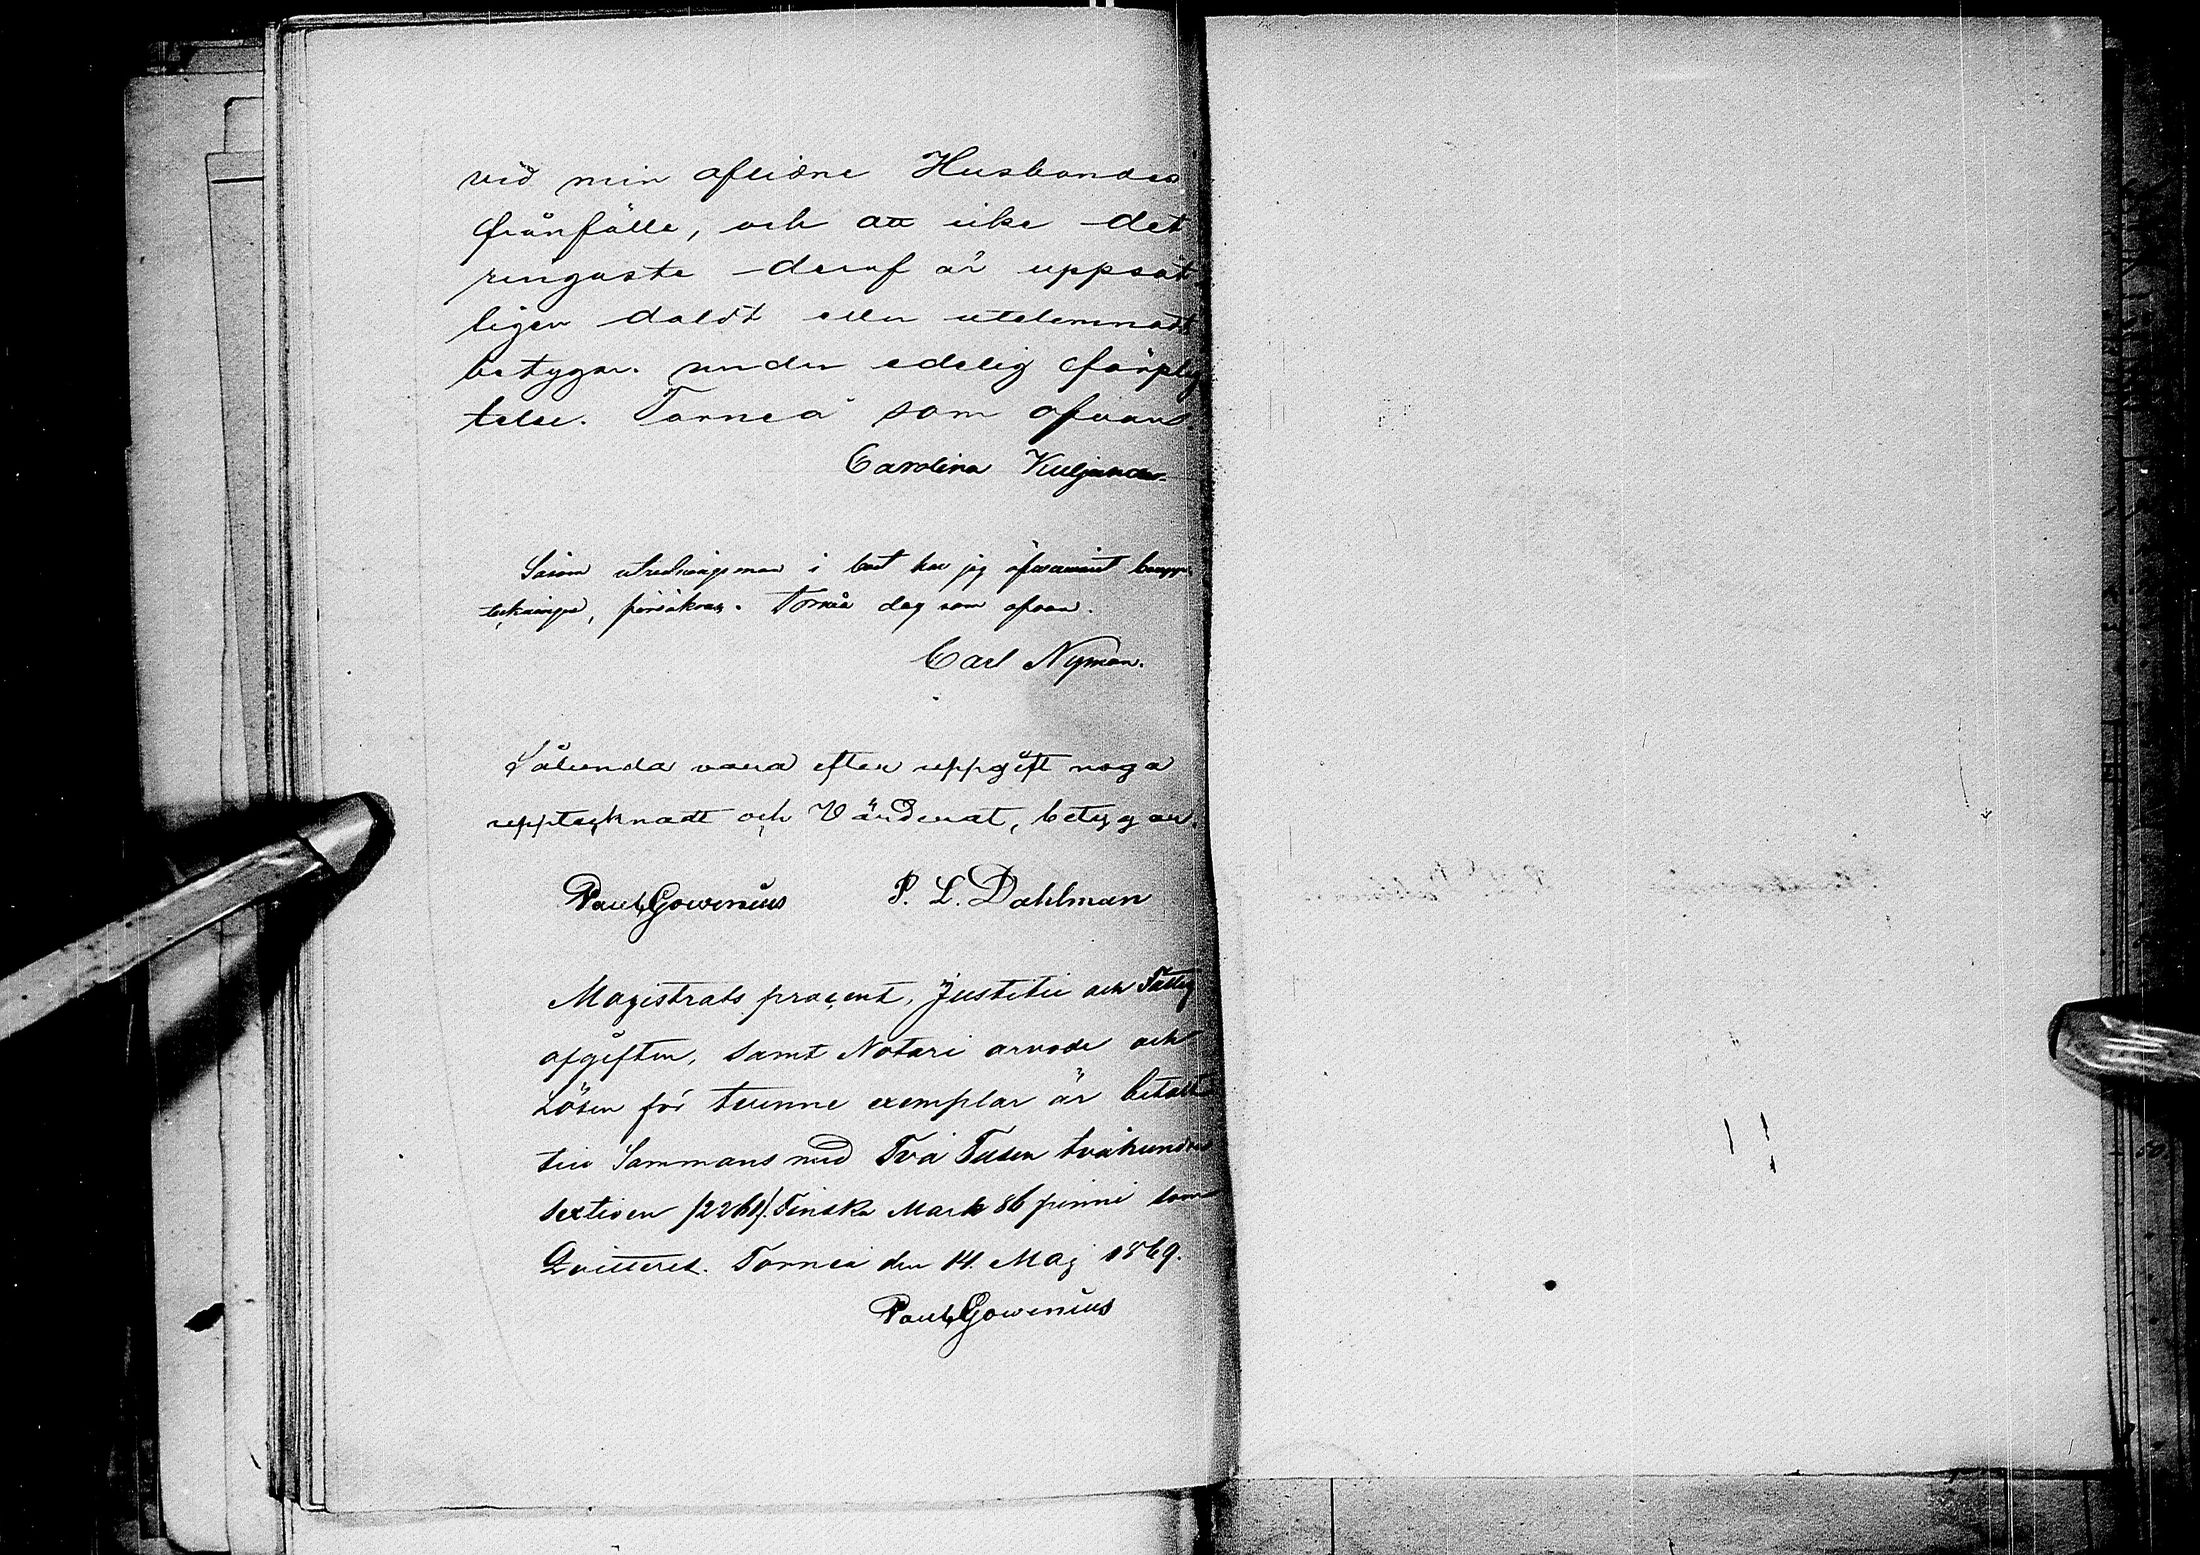 vid min aflidne Husbondes
frånfälle, och att icke det
ringaste deraf är uppsåt-
ligen doldt eller utelemnadt
betygar under edelig förplig
telse. Torneå som ofvans.
Carolina Kuljander
Såsom utredningsman i boet har jag ofvannämnt boupp-
teckningen, försäkras. Torneå dag som ofvan.
Carl Nyman.
Sålunda vara efter uppgift noga
upptecknadt och Värderat, betygar.
Paul Gowenius P. L. Dahlman
Magistrats procent, Justitie och Fattig
afgiften, samt Notarie arvode och
Lösen för tvenne exemplar är betalt
till Sammans med Två Tusen tvåhundra
sextioen /2261/. Finska Mark 86 penni som
Qvitteret. Torneå den 14. Maj 1869.
Paul Gowenius